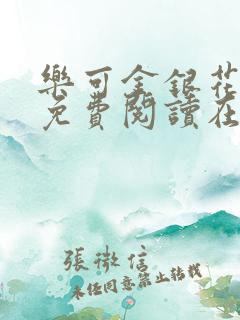 樂可金銀花
免費閱讀在
張微信
未經同意禁止轉載